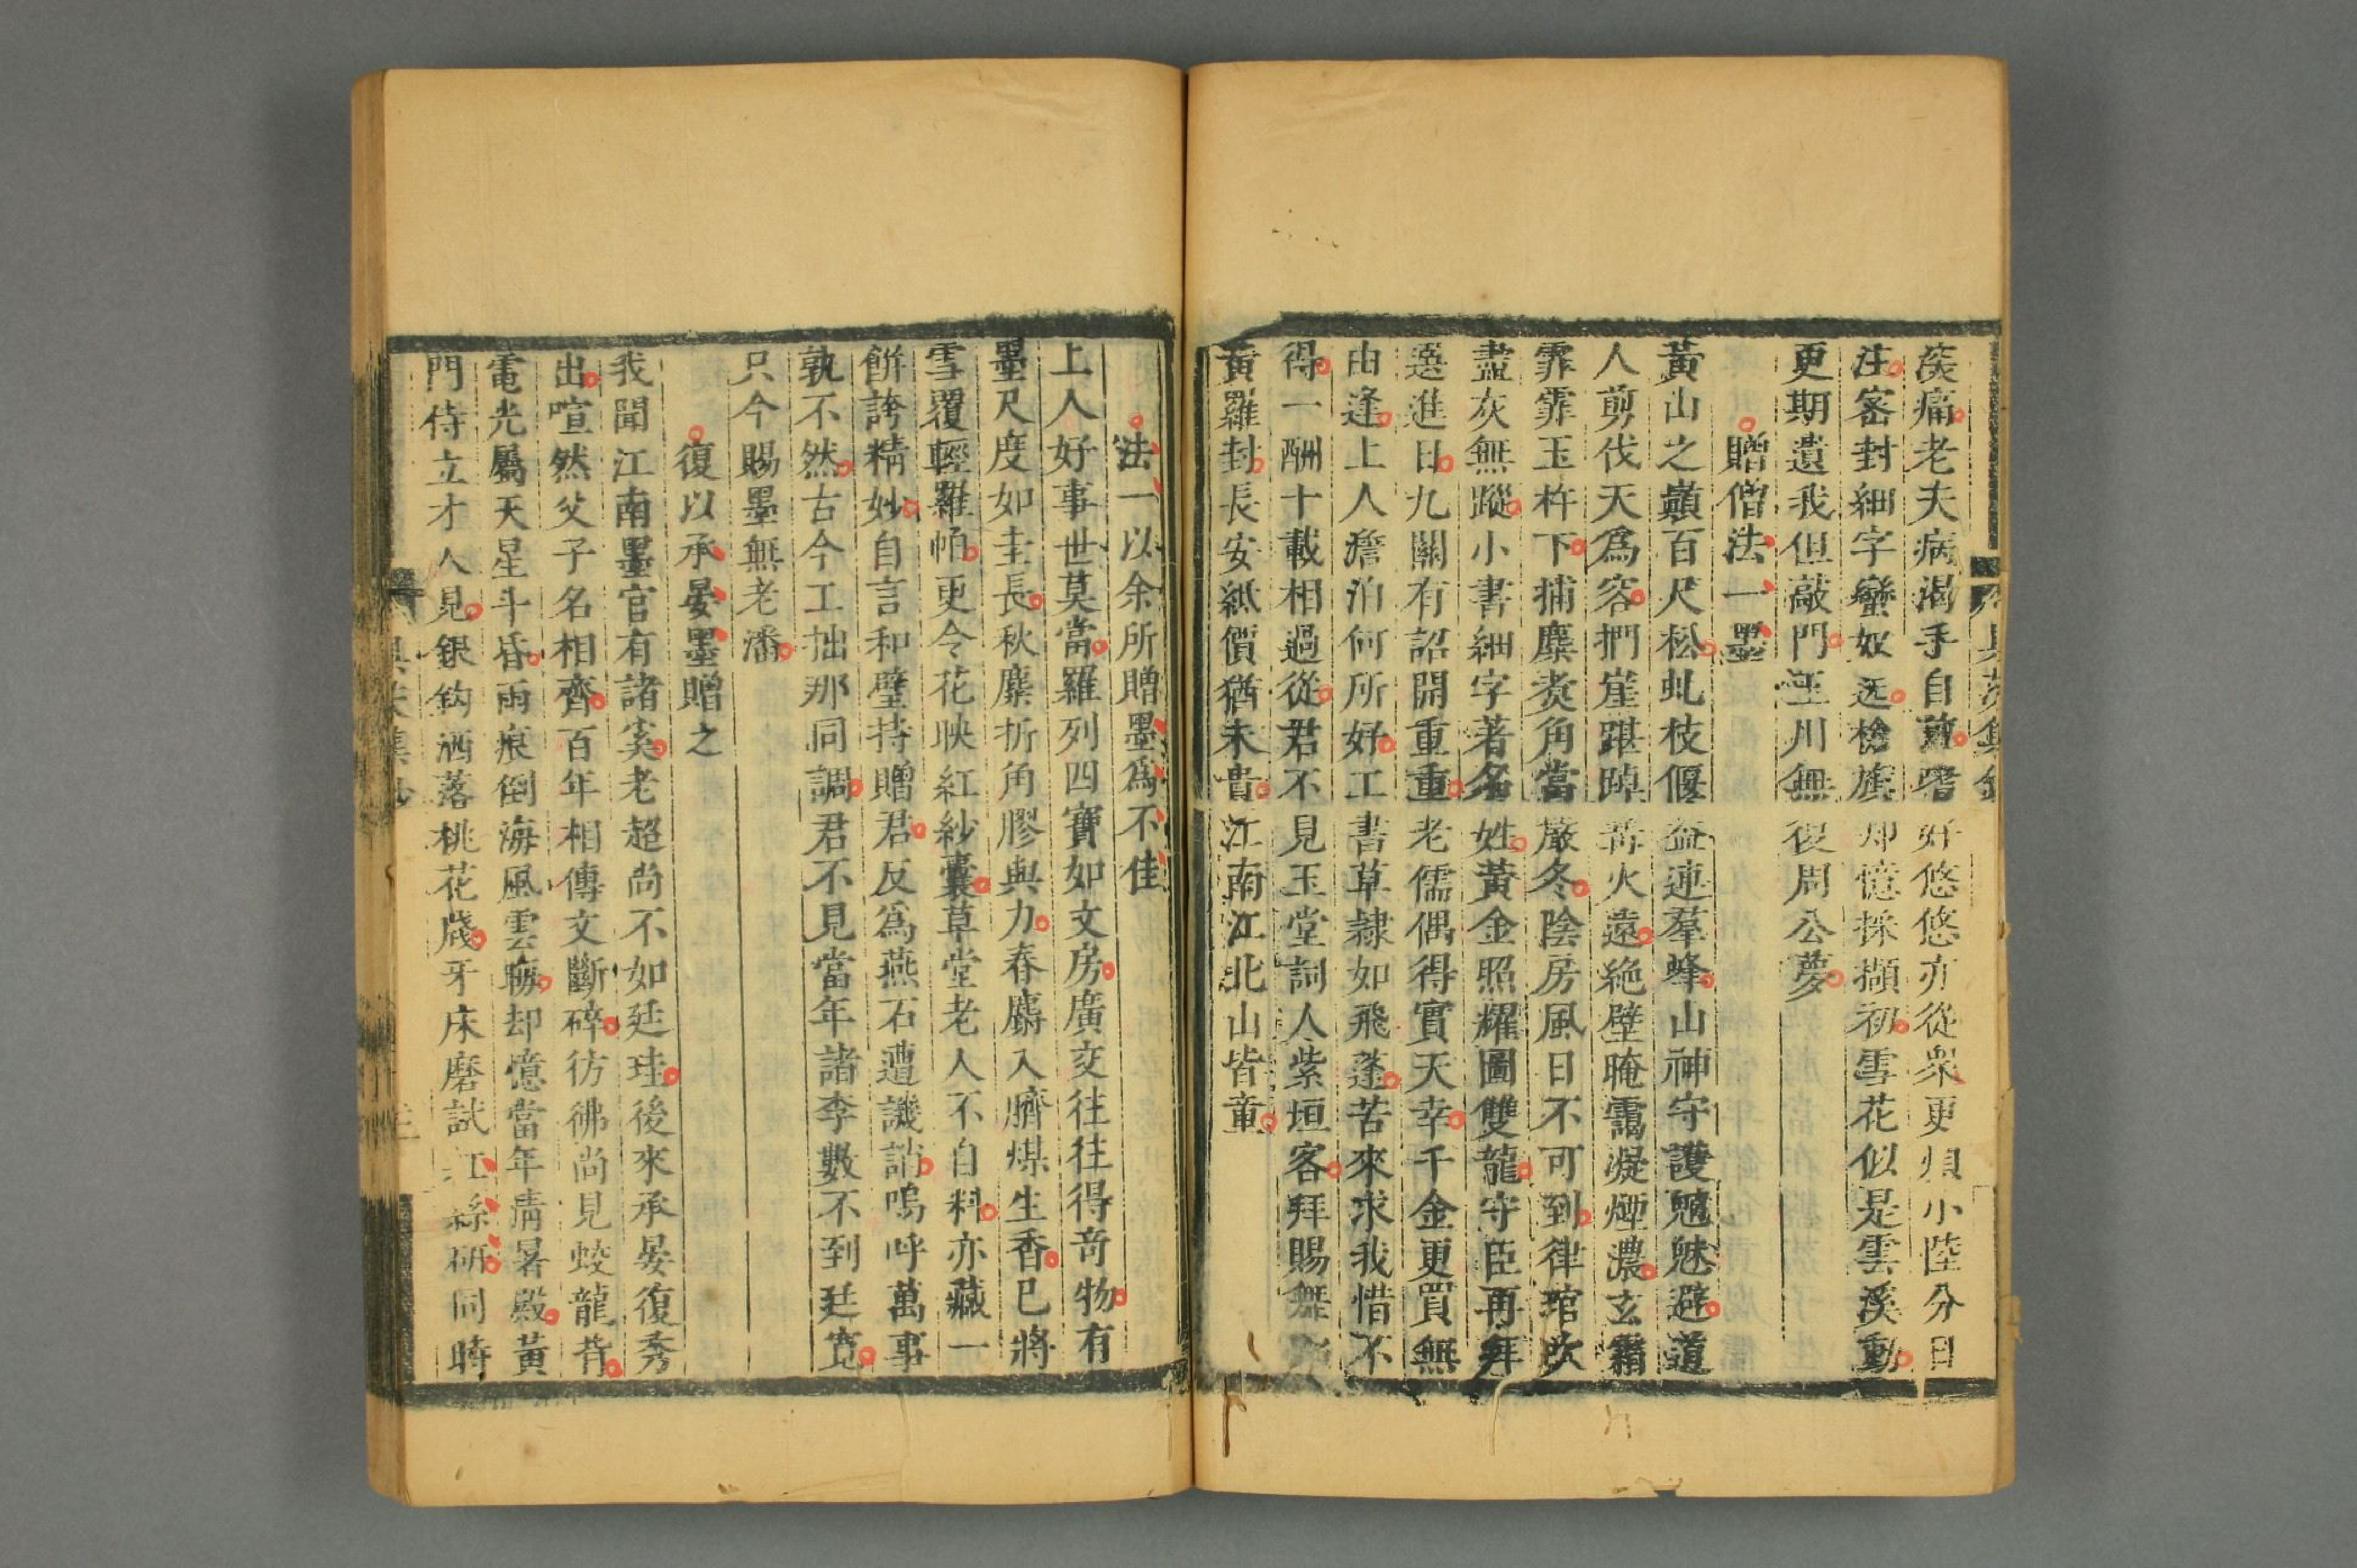 痰痛老夫病渴手自煎嗜好悠悠亦從衆更煩小陸分日
注密封細字蠻奴送槍旗却憶採擷初雪花似是雲溪動
更期遺我但敲門玉川無復周公夢
贈僧法一墨
黃山之巔百尺松虬枝偃蓋連羣蜂山神守護魑魅避道
人剪伐天爲容捫崖踸踔篝火遠絶壁晻靄凝煙濃玄霜
霏霏玉杵下捕麋煑角當嚴冬陰房風日不可到律琯吹
盡灰無蹤小書細字著名姓黃金照耀圖雙龍守臣再拜
選進日九關有詔開重重老儒偶得實天幸千金更買無
由逢上人澹泊何所好工書草隸如飛蓬苦來求我惜不
得一酬十載相過從君不見玉堂詞人紫垣客拜賜舞
黃羅封長安紙價猶未貴江南江北山皆童
法一以余所贈墨爲不佳
上人好事世莫當羅列四寶如文房廣交往往得奇物有
墨尺度如圭長秋麋折角膠與力春麝入臍煤生香已將
雪覆輕羅帕更令花映紅紗囊草堂老人不自料亦藏一
餅誇精妙自言和璧持贈君反爲燕石遭譏誚嗚呼萬事
孰不然古今工拙那同調君不見當年諸李數不到廷寬
只今賜墨無老潘
復以承晏墨贈之
我聞江南墨官有諸奚老超尚不如廷珪後來承晏復秀
出喧然父子名相齊百年相傳文斷碎彷彿尚見蛟龍背
電光屬天星斗昏雨痕倒海風雲晦却憶當年清暑殿黃
門侍立才人見銀鈎洒落桃花牋牙床磨試紅絲研同時